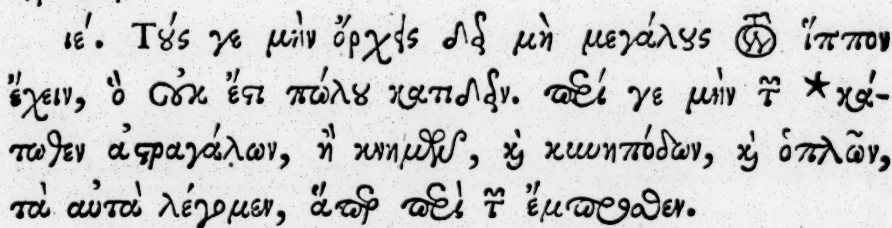 ιε΄. Τούς γε μὴν ὄρχεις δεῖ μὴ μεγάλους τὸν ἵππον
ἔχειν, ὃ οὐκ ἔστι πώλου κατιδεῖν. περί γε μὴν τῶν *κά-
τωθεν ἀστραγάλων, ἢ κνημῶν, καὶ κυνηπόδων, καὶ ὁπλῶν,
τὰ αὐτὰ λέγομεν, ἅπερ περὶ τῶν ἔμπροσθεν.